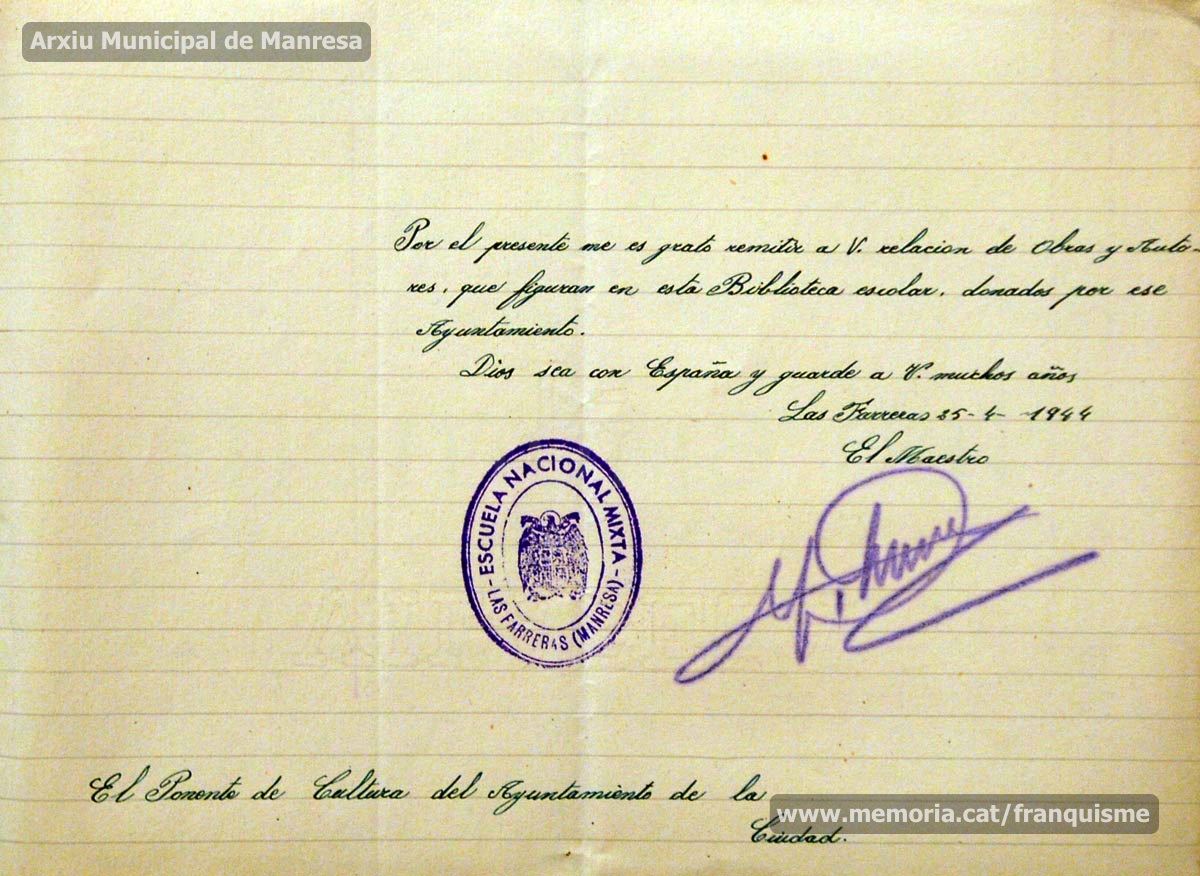 Arxiu Municipal de Manresa
Por el presente me es grato remitir a V. relacion de Obras y Auto-
res, que figuran en esta Biblioteca escolar, donados por ese
Ayuntamiento.
Dios sea con España y guarde a V. muchos años
Las Farreras 25-4-1944
El Maestro
ESCUELA NACIONAL MIXTA
- LAS FARRERAS (MANRESA) -
El Ponente de Cultura del Ayuntamiento de la
Ciudad.
www.memoria.cat/franquisme